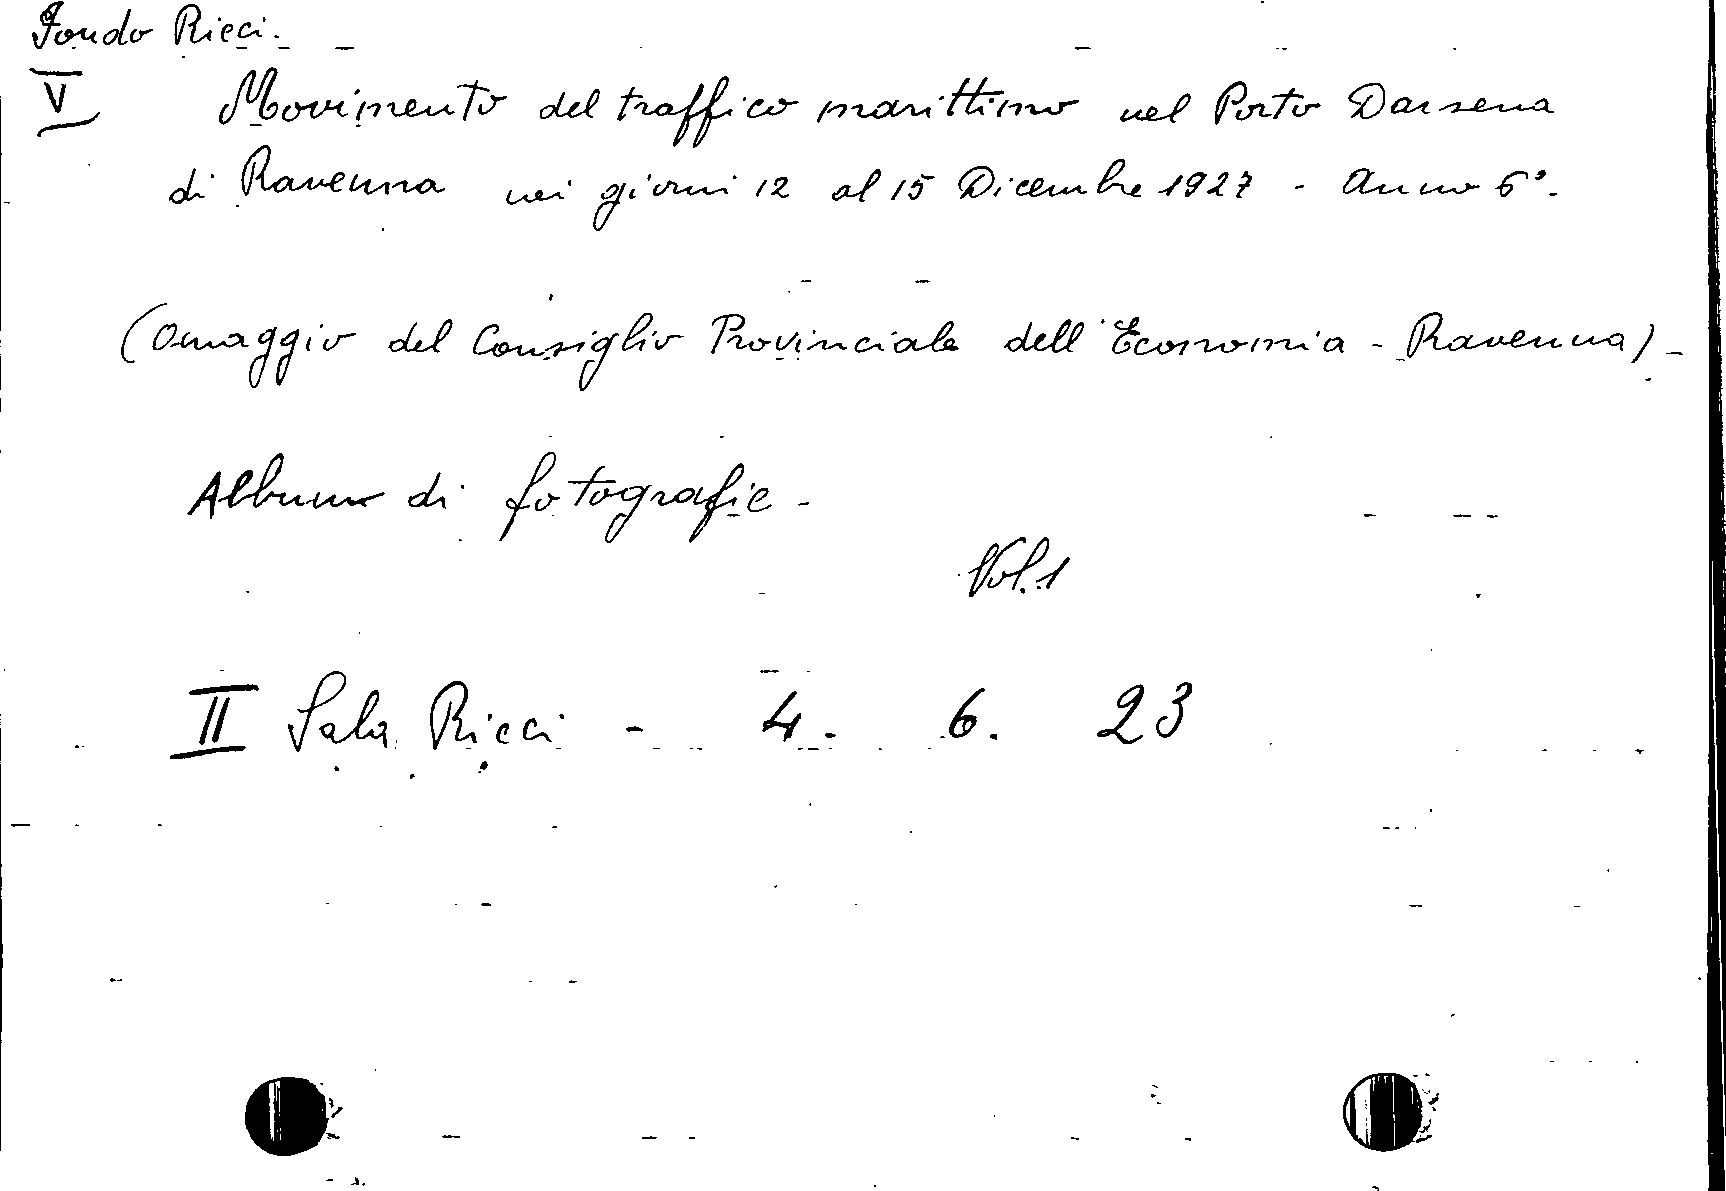 Fondo Ricci.
V Movimento del traffico marittimo nel Porto Darsena
di Ravenna nei giorni 12 al 15 Dicembre 1927 - Anno 6°.
(Omaggio del Consiglio Provinciale dell'Economia - Ravenna) -
Album di fotografie -
Vol. 1
II Sala Ricci - 4. 6. 23